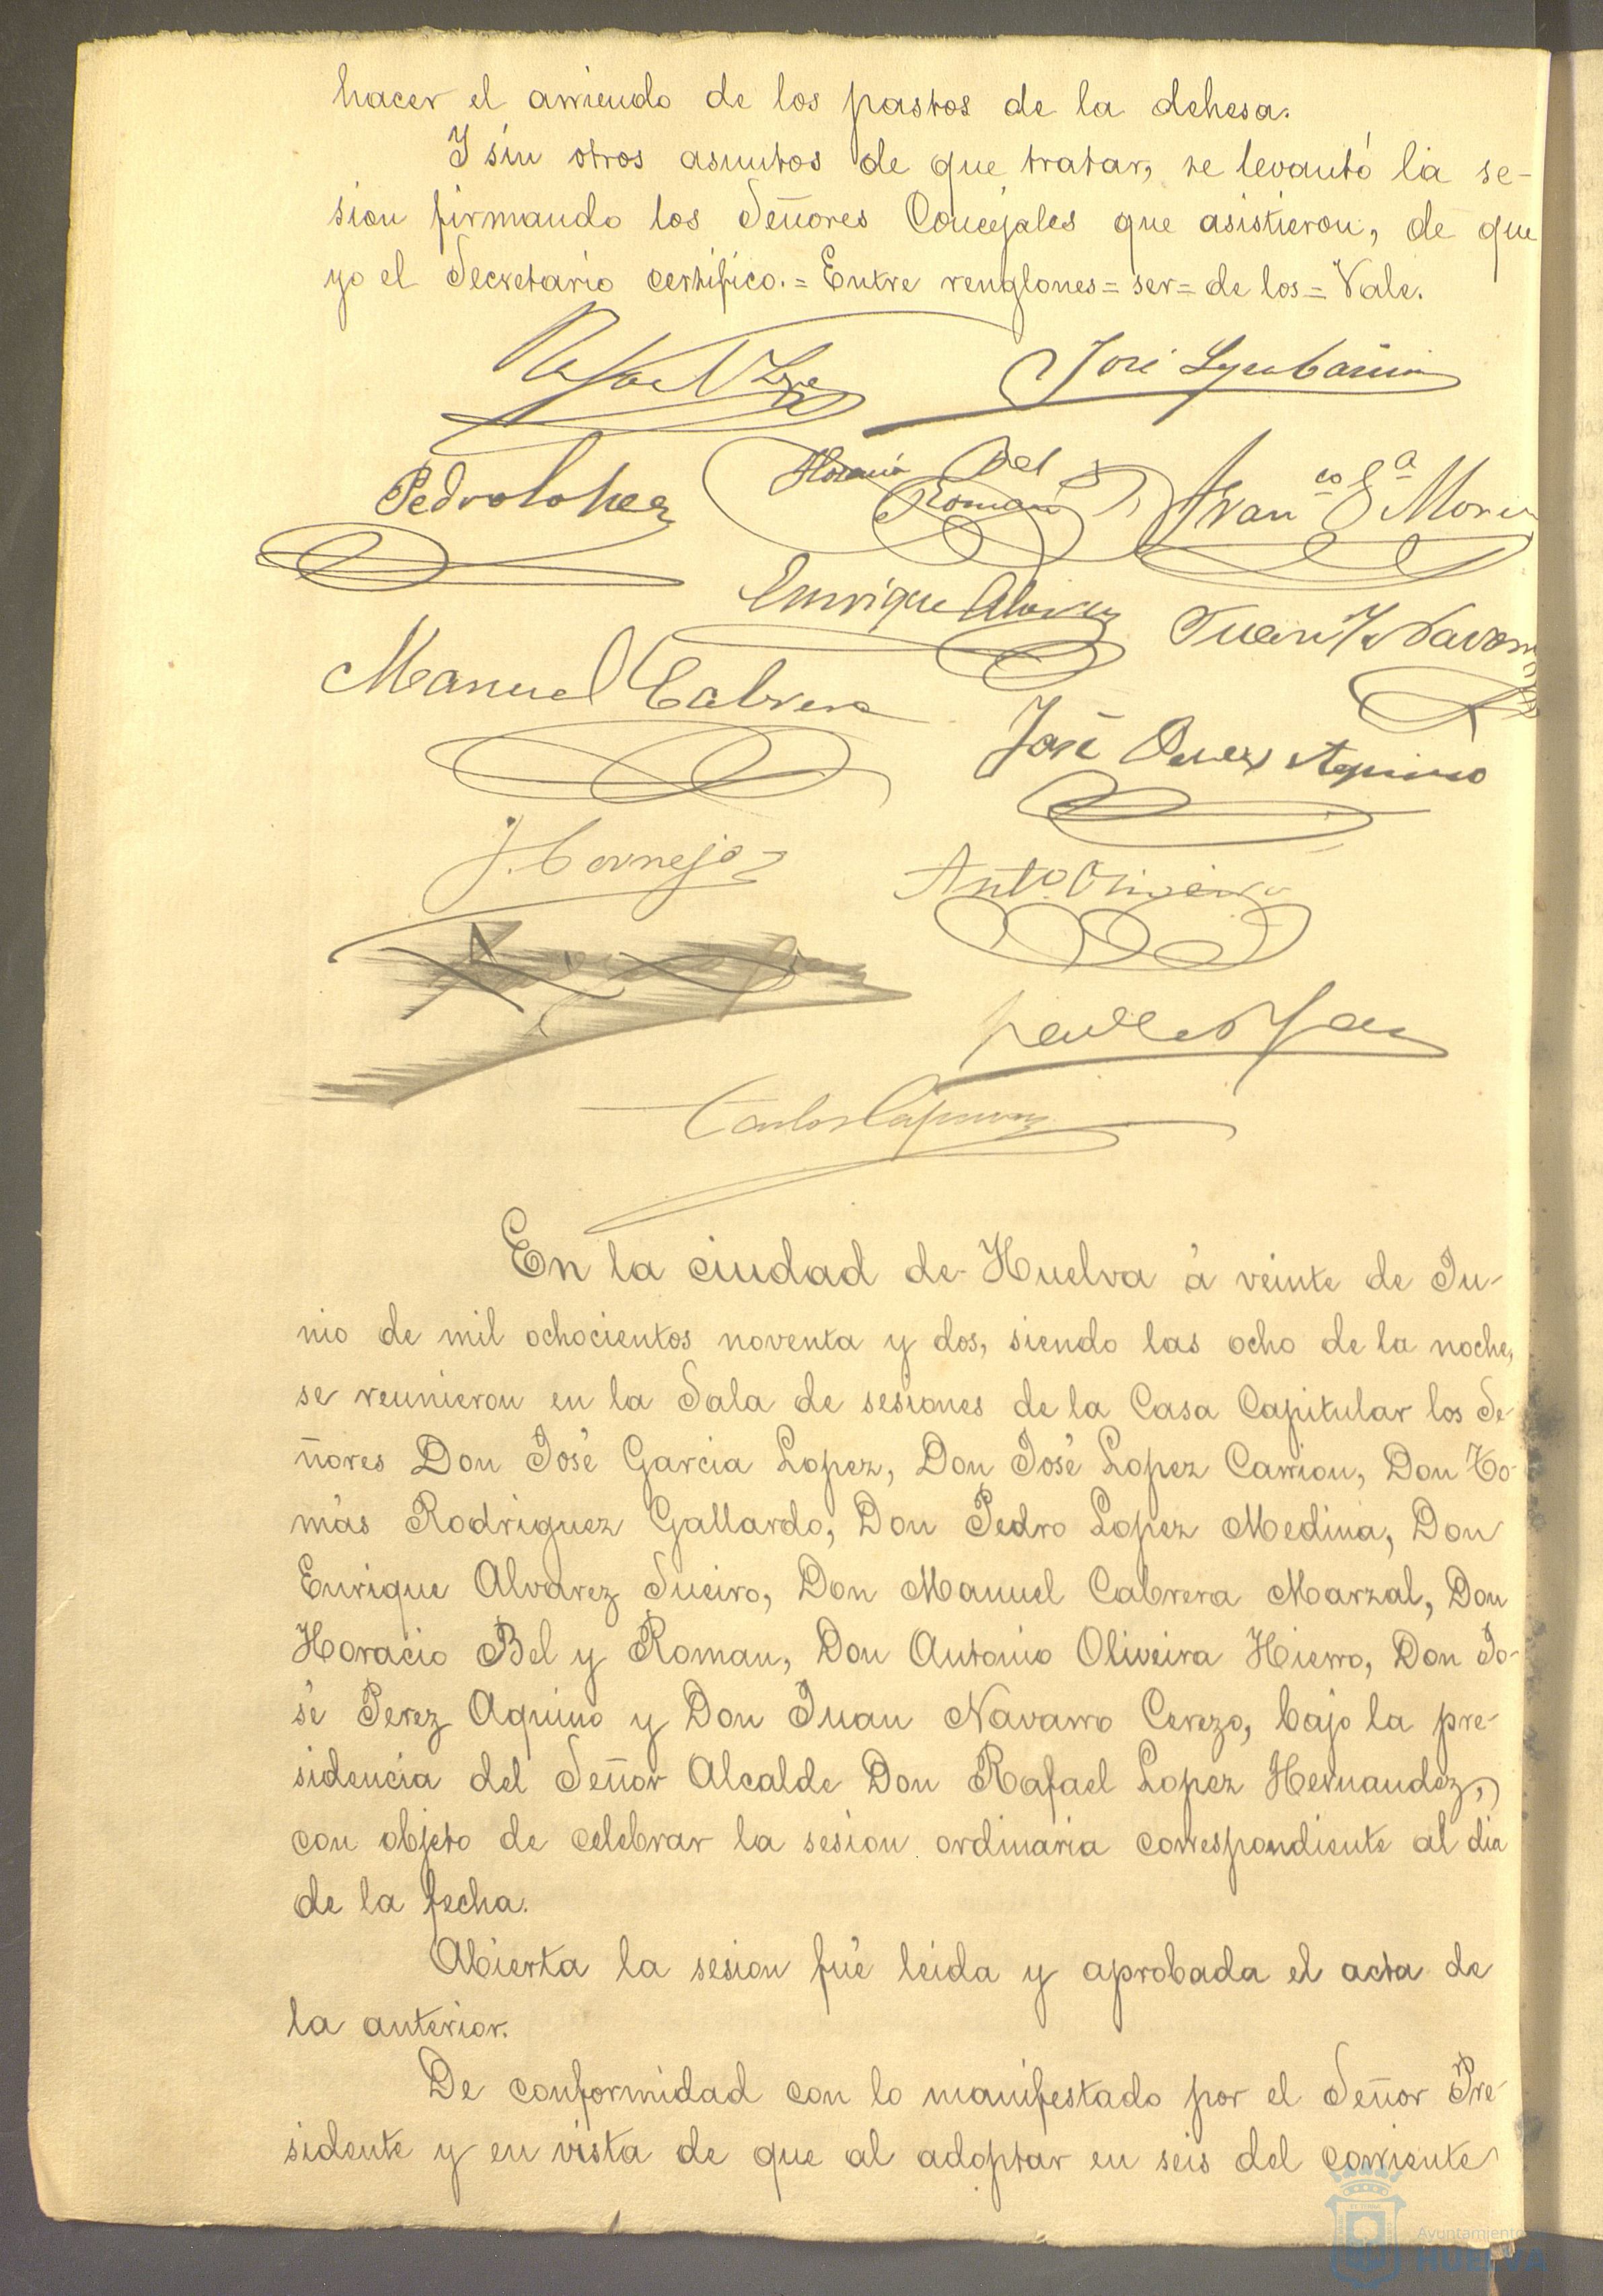 hacer el arriendo de los pastos de la dehesa.
Y sin otros asuntos de que tratar, se levantó la se-
sion firmando los Señores Concejales que asistieron, de que
yo el Secretario certifico.= Entre renglones= ser= de los= Vale.
Rafael Lopez José
Pedro Lopez Horacio Bel Roman Fran.co G.a Mor
Enrique Alvarez Juan Navarro
Manuel Cabrera
José Perez Aquino
J. Cornejo
Ant.o Oliveira
Carlos
En la ciudad de Huelva á veinte de Ju-
nio de mil ochocientos noventa y dos, siendo las ocho de la noche,
se reunieron en la Sala de sesiones de la Casa Capitular los Se-
ñores Don José Garcia Lopez, Don José Lopez Carrion, Don To-
más Rodriguez Gallardo, Don Pedro Lopez Medina, Don
Enrique Alvarez Sueiro, Don Manuel Cabrera Marzal, Don
Horacio Bel y Roman, Don Antonio Oliveira Hierro, Don Jo-
sé Perez Aquino y Don Juan Navarro Cerezo, bajo la pre-
sidencia del Señor Alcalde Don Rafael Lopez Hernandez,
con objeto de celebrar la sesion ordinaria correspondiente al dia
de la fecha.
Abierta la sesion fué leida y aprobada el acta de
la anterior.
De conformidad con lo manifestado por el Señor Pre-
sidente y en vista de que al adoptar en seis del corriente
Ayuntamiento
HUELVA